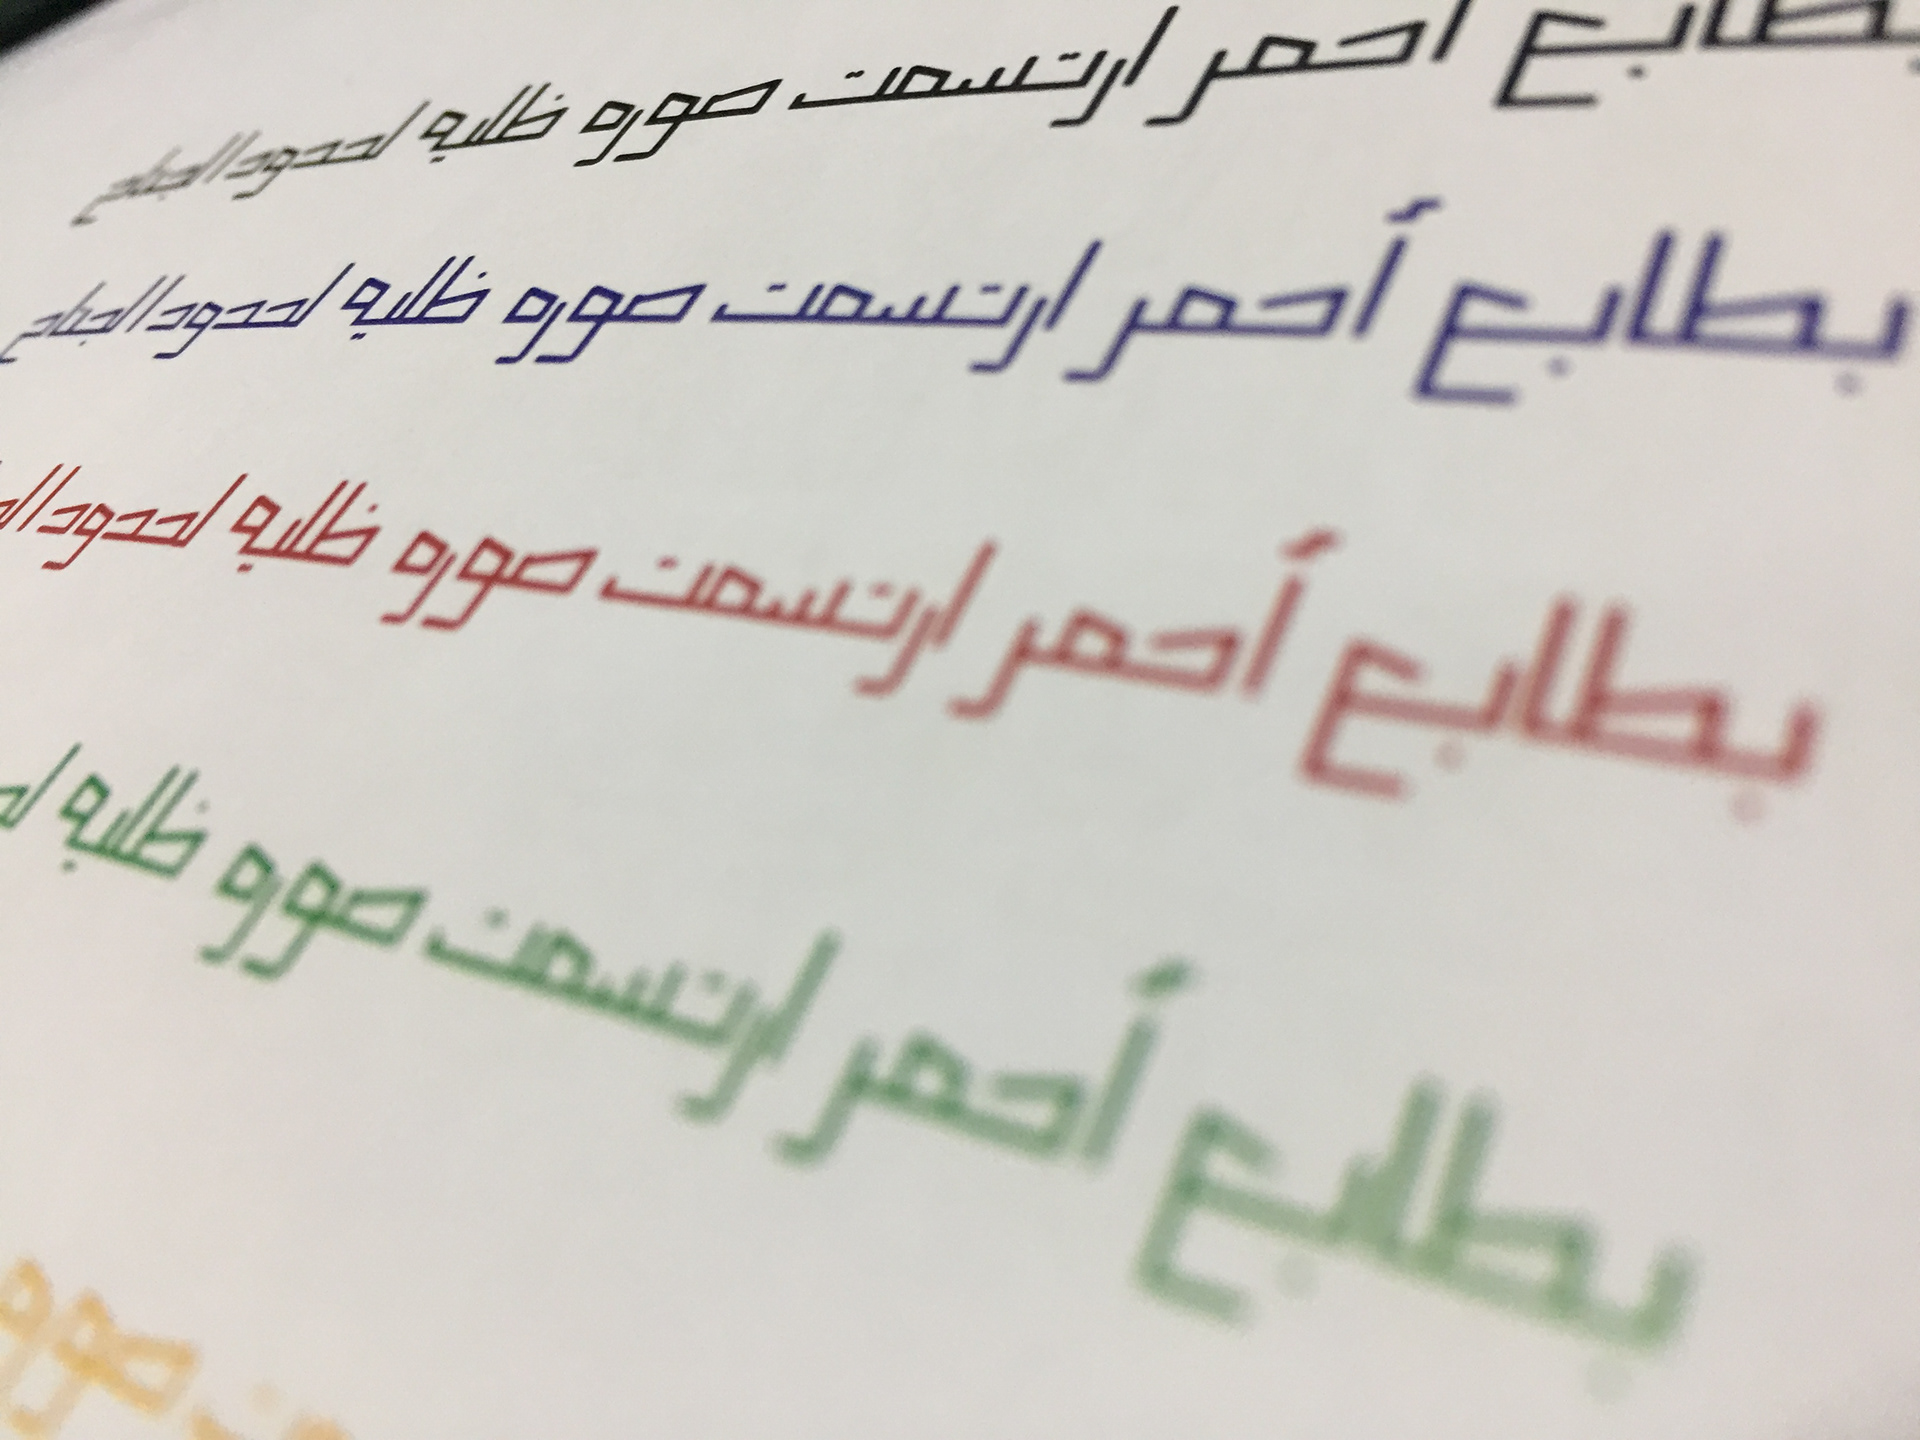 بطابع أحمر ارتسمت صوره ظليه لحدود الجناح
بطابع أحمر ارتسمت صوره ظليه لحدود الجناح
بطابع أحمر ارتسمت صوره ظليه لحدود
بطابع أحمر ارتسمت صوره ظليه
صوره